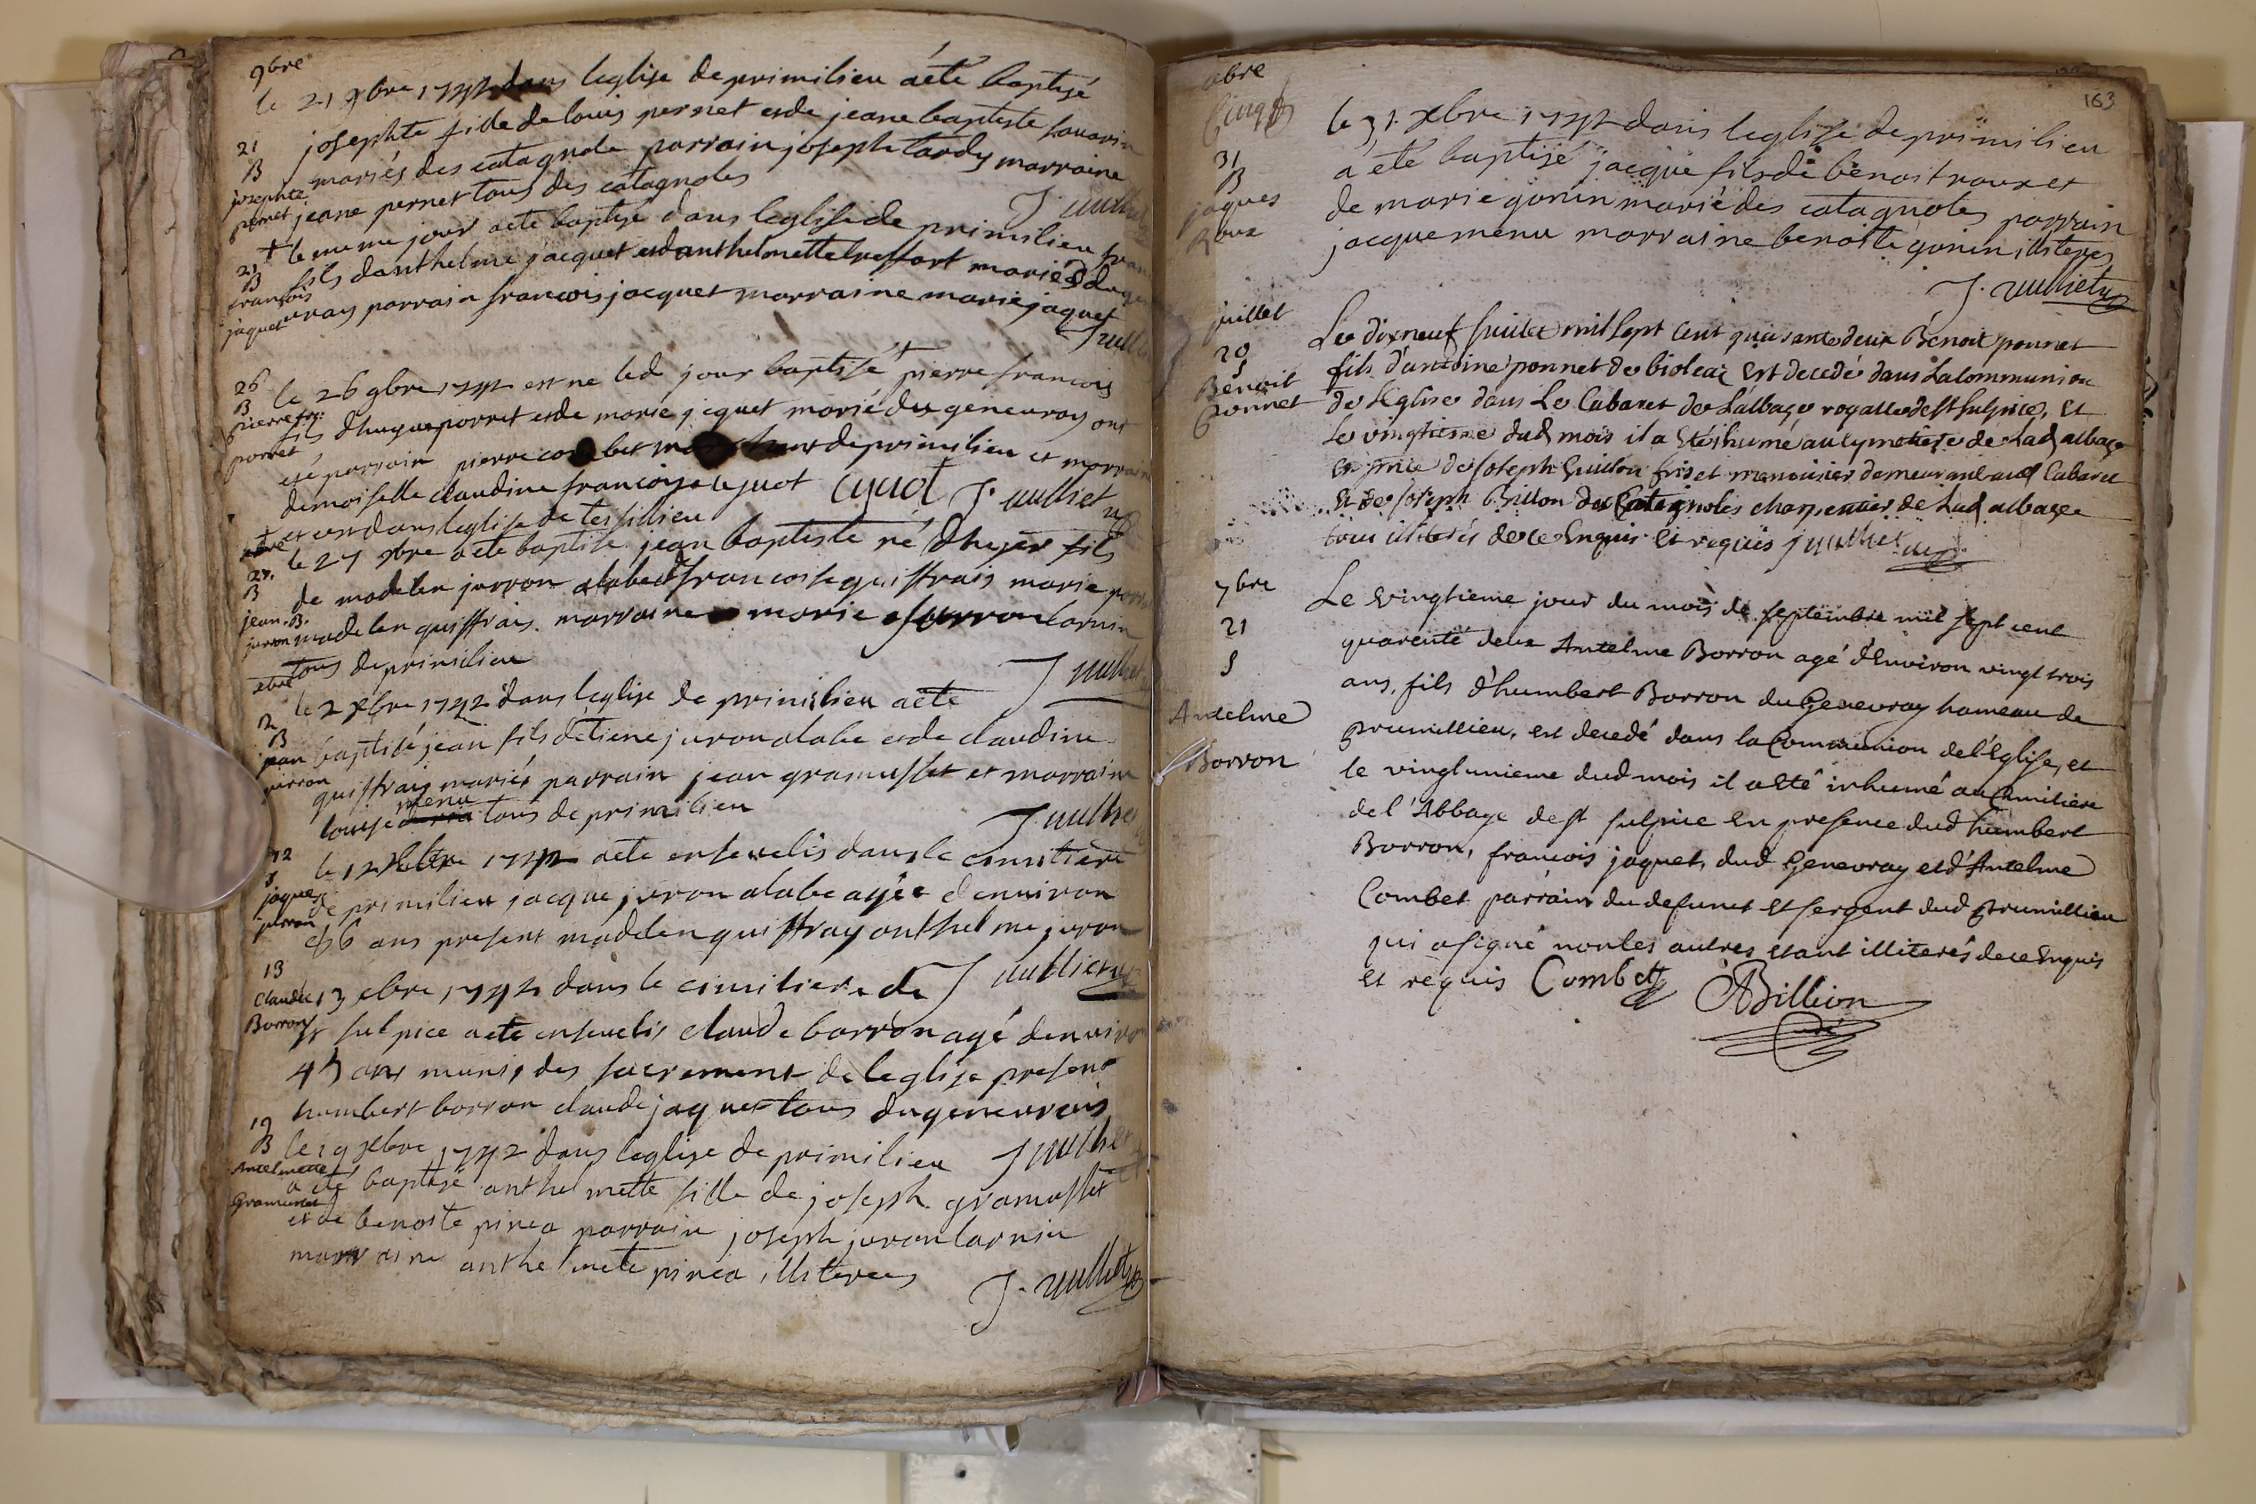 9bre
le 21 9bre 1742 dans leglise de primilieu aété baptisé
21
B
josephte
pernet
josephte fille de louis pernet et de jeane baptiste savarin
mariés des catagnole parrain joseph tardy marraine
jeane pernet tous des catagnoles
J. vulliet
21
B
francois
jaquet
+ le meme jour aeté baptisé dans leglise de primilieu
fils danthelme jacquet et danthelmette mariés
parrain francois jacquet marraine marie jaquet
J vulliet
26
B
pierre fr:
porret
le 26 9bre 1742 est ne led jour baptisé pierre francois
fils dhugue porret et de marie jcquet mariés du genevray ont
eté parrain pierre combet de primilieu et marraine
demoiselle claudine francoise cyuot cyuot J. vulliet
et cest dans leglise de
27.
B
jean.B.
juron
le 27 xbre aeté baptisé jean baptiste né dhuyer fils
de madelen jurron alabe francoise quiffrais
madelen quiffrais marraine marie jurron larnin
tous de primilieu
J vulliet
xbre
2
B
jean
jurron
le 2 xbre 1742 dans leglise de primilieu aeté
baptisé jean fils détiene juron alabe et de claudine
quiffrais mariés parrain jean gramusset et marraine
menu
louise tous de primilieu
J vulliet
12
s
jaques
jurron
le 12 xbre 1742 aeté ensevelis dans le cimitiere
de primilieu jacque juron alabe agée denviron
56 ans present madelen quiffray anthelme juron
J vulliet
13
Claude
Borron
13 xbre 1742 dans le cimitiere de
st sulpice aeté ensevelis claude borron agé denviron
45 ans munis des sacrement de leglise present
humbert borron claude jaquet tous du genevrais
J vulliet
19
B
Antelmette
Gramusset
le 19 xbre 1742 dans leglise de primilieu
a eté baptisé anthelmette fille de joseph gramusset
et de benoite pinea parrain joseph juron larnin
marraine anthelmete pinea illiterees
J. vulliet
xbre
163
31
B
jaques
Roux
le 31 xbre 1742 dans leglise de primilieu
a eté baptisé jacque fils de benoit roux et
de marie gonin marié des catagnoles parrain
jacque menu marraine benoite gonin illiteres
J. vulliet
juillet
20
S
Benoit
Ponnet
Le dixneuf Juillet mil sept cent quarante deux Benoit ponnet
fils d'antoine ponnet de bioleaz est decedé dans La Communion
de Leglise dans Le Cabaret de Labbaye royalle de St Sulpice, et
Le vingtieme dud mois il a eté inhumé au cymetiere de Lad abbaye
en pnce de Joseph Guillon fris et menuisier demeurant aud Cabaret
et de Joseph Brillon des Catagnoles charpentier de Lad abbaye
tous illiterés de ce Enquis et requis J vulliet curé
7bre
21
S
Antelme
Borron
Le vingtieme jour du mois de septembre mil sept cent
quarente deux Antelme Borron agé d'Environ vingt trois
ans, fils d'humbert Borron du Genevray hameau de
prumillieu, est decedé dans la Communion de l'Eglise, et
le vingtunieme dud mois il a eté inhumé au Cimitiere
de l'Abbaye de st sulpice en presence dud humbert
Borron, francois jaquet, dud Genevray et d'Antelme
Combet parrain du defunct et sergent dud prumillieu
qui a signé non les autres etant illiterés de ce Enquis
et requis Combet ABillion
curé